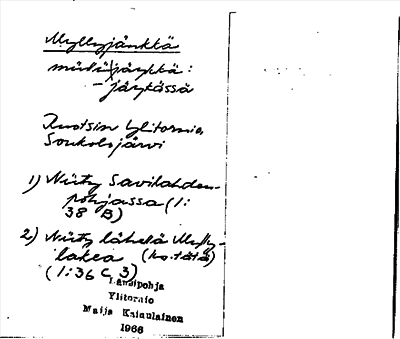 Myllyjänkkä
jäŋkkä:
- jäŋkässä
Ruotsin Ylitornio,
Soukolojärvi
1) Niitty Savilahden-
pohjassa (1:
38 B)
2) Niitty lähellä Mylly-
lakea (ks. tätä)
(1:36 C 3)
Länsipohja
Ylitornio
Maija Kainulainen
1966